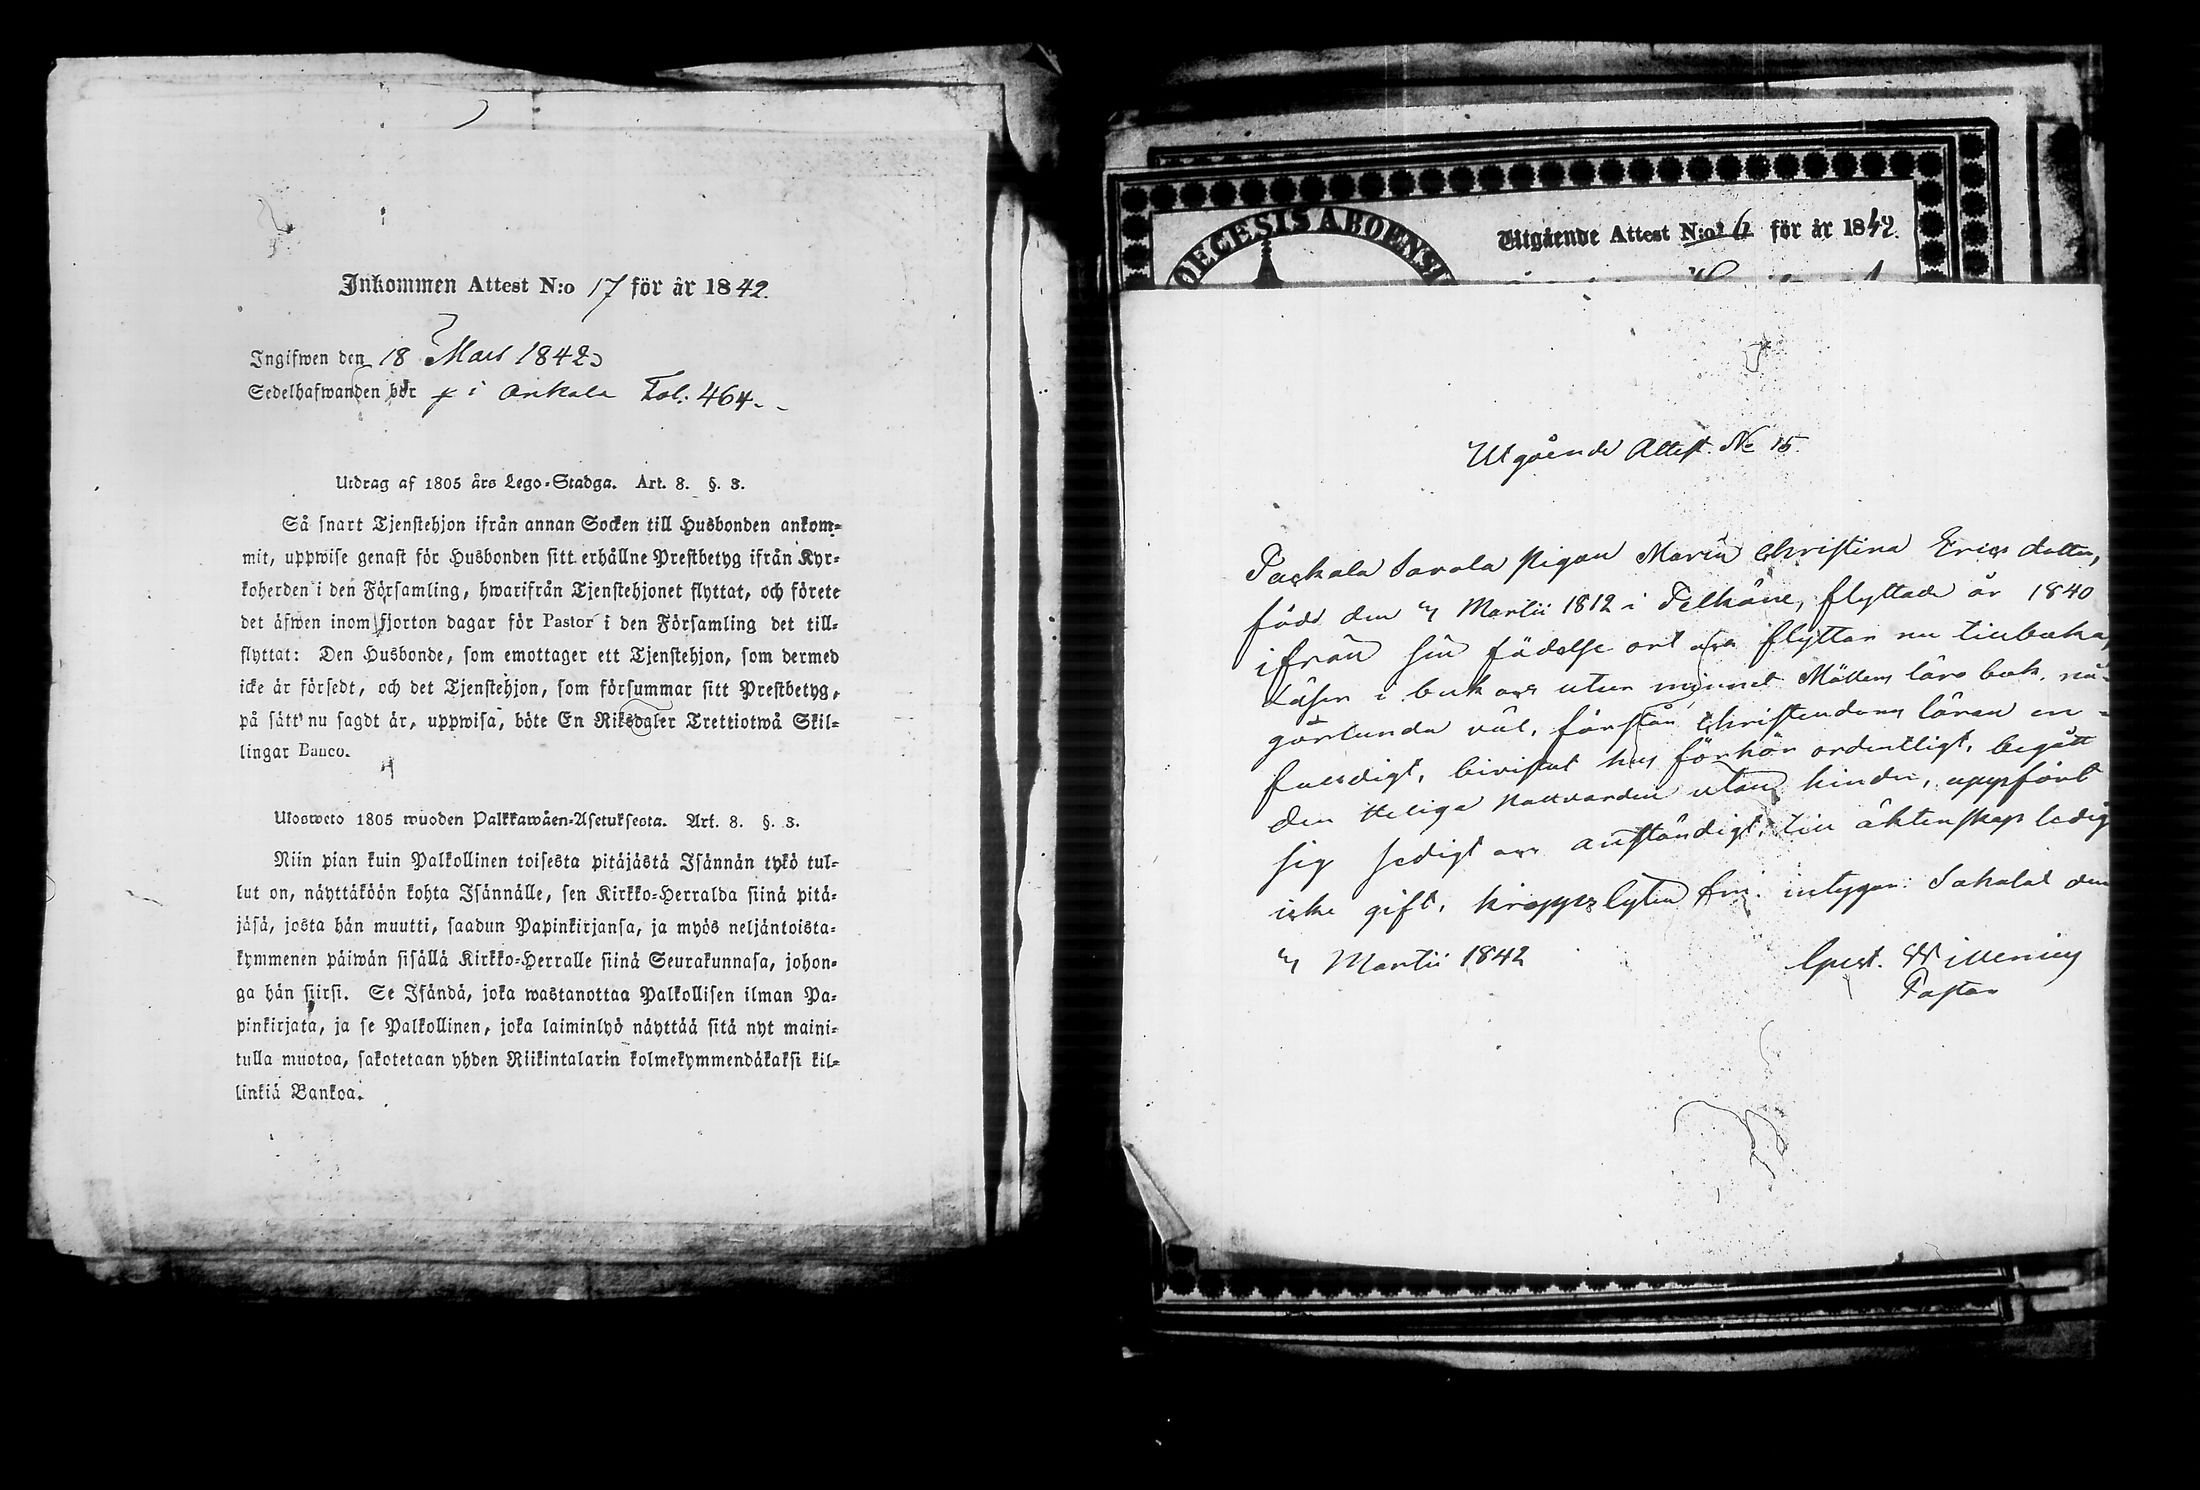 Inkommen Attest N:o 17 för år 1842.
Ingifwen den 18 Mars 1842
Sedelhafwanden bor i Onkala Fol: 464.
Utdrag af 1805 års Lego-Stadga. Art. 8. §. 3.
Så snart Tjenstehjon ifrån annan Socken till Husbonden ankom-
mit, uppwise genast för Husbonden sitt erhållne Prestbetyg ifrån Kyr-
koherden i den Församling, hwarifrån Tjenstehjonet flyttat, och förete
det äfwen inom fjorton dagar för Pastor i den Församling det till-
flyttat: Den Husbonde, som emottager ett Tjenstehjon, som dermed
icke är försedt, och det Tjenstehjon, som försummar sitt Prestbetyg,
på sätt nu sagdt är, uppwisa, böte En Riksdaler Trettiotwå Skil-
lingar Banco.
Ulosweto 1805 wuoden Palkkawäen-Asetuksesta. Art. 8. §. 3.
Niin pian kuin Palkollinen toisesta pitäjästä Isännän tykö tul-
lut on, näyttäköön kohta Isännälle, sen Kirkko-Herralda siinä pitä-
jäsä, josta hän muutti, saadun Papinkirjansa, ja myös neljäntoista-
kymmenen päiwän sisällä Kirkko-Herralle siinä Seurakunnasa, johon-
ga hän siirsi. Se Isändä, joka wastanottaa Palkollisen ilman Pa-
pinkirjata, ja se Palkollinen, joka laiminlyö näyttää sitä nyt maini-
tulla muotoa, sakotetaan yhden Riikintalarin kolmekymmendäkaksi kil-
linkiä Bankoa.
DIOECESIS ABOENS
Utgående Attest N:o 6 för år 1842.
Utgående Attest No 15.
Savola Pigan Maria Christina Ericsdotter,
född den 4 Martii 1812 i Pelkäne, flyttade år 1840
ifrån sin födelse ort och flyttar nu tillbaka,
Läser i bok och utur minnet Möllers läro bok nå-
görlunda väl, förstår Christendoms läran en-
faldigt, bivistat hus förhör ordentligt, begått
den Heliga Nattvarden utan hinder, uppfört
sig sedigt och anständigt, till äktenskap ledig
icke gift, kroppslyten fri. intygar. Sahalax den
4 Martii 1842
Gust. Willenius
Pastor